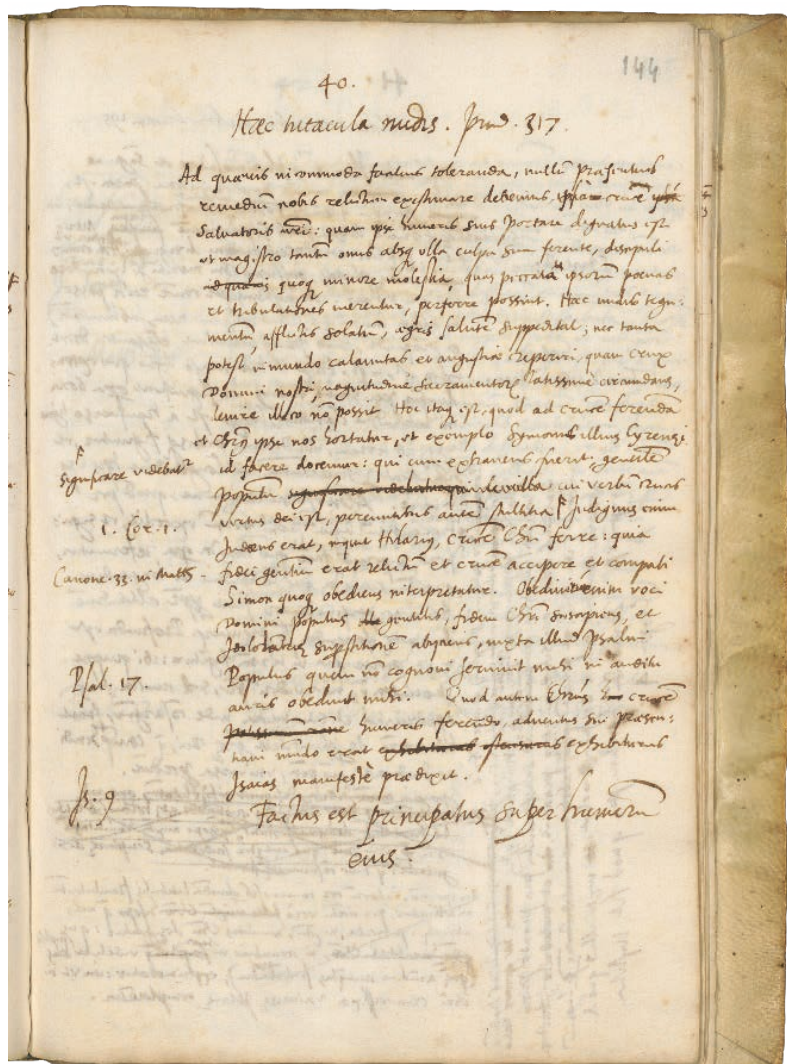 144
40.
Hæc tutacula nudis. prud. 317.
Ad quævis incommoda fortius toleranda, nullū præsentius
remediū nobis relictum existimare debemus crucē
Salvatoris nr̄i: quam ipse humeris suis portare dignatus est
ut magistro tantū onus absq ulla culpa sua ferente, discipuli
quoq minore molestia, quas peccata ipsorū pœnas
et tribulationes merentur, perferre possint. Hæc nudis tegu-
mentū, afflictis solatiū, ægris salutē suppeditat; nec tanta
potest in mundo calamitas et angustia reperiri, quam crux
Domini nostri, magnitudinē sacramentorū latissime circundans,
lenire illico nō possit. Hoc itaq est, quod ad crucē ferendā
et Chrūs ipse nos hortatur, et exemplo Symonis illius Cyrenęi
id facere docemur: qui cum extraneus fuerit, gentilē
significare videbatr
populum significare videbatur cui verbū crucis
1. Cor. 1.
virtus dei est, pereuntibus autē stultitia Indignus enim
Judæus erat, inquit Hilarius, crucē Chrī ferre: quia
Canone. 33. in Matth.
fidei gentium erat relictū et crucē accipere et compati
Simon quoq obediens interpretatur. Obedivit enim voci
Domini populus gentilis, fidem Chrī suscipiens, et
Idolorū superstitionē abijciens, iuxta illud Psalmi
Psal. 17.
Populus quem nō cognovi servivit mihi in auditu
auris obedivit mihi. Quod autem Chrūs crucē
humeris ferendo, adventus sui præsen-
tiam mūdo erat exhibiturus exhibiturus
Isaias manifestè prædixit.
Is. 9
Factus est principatus super humerū
eius.